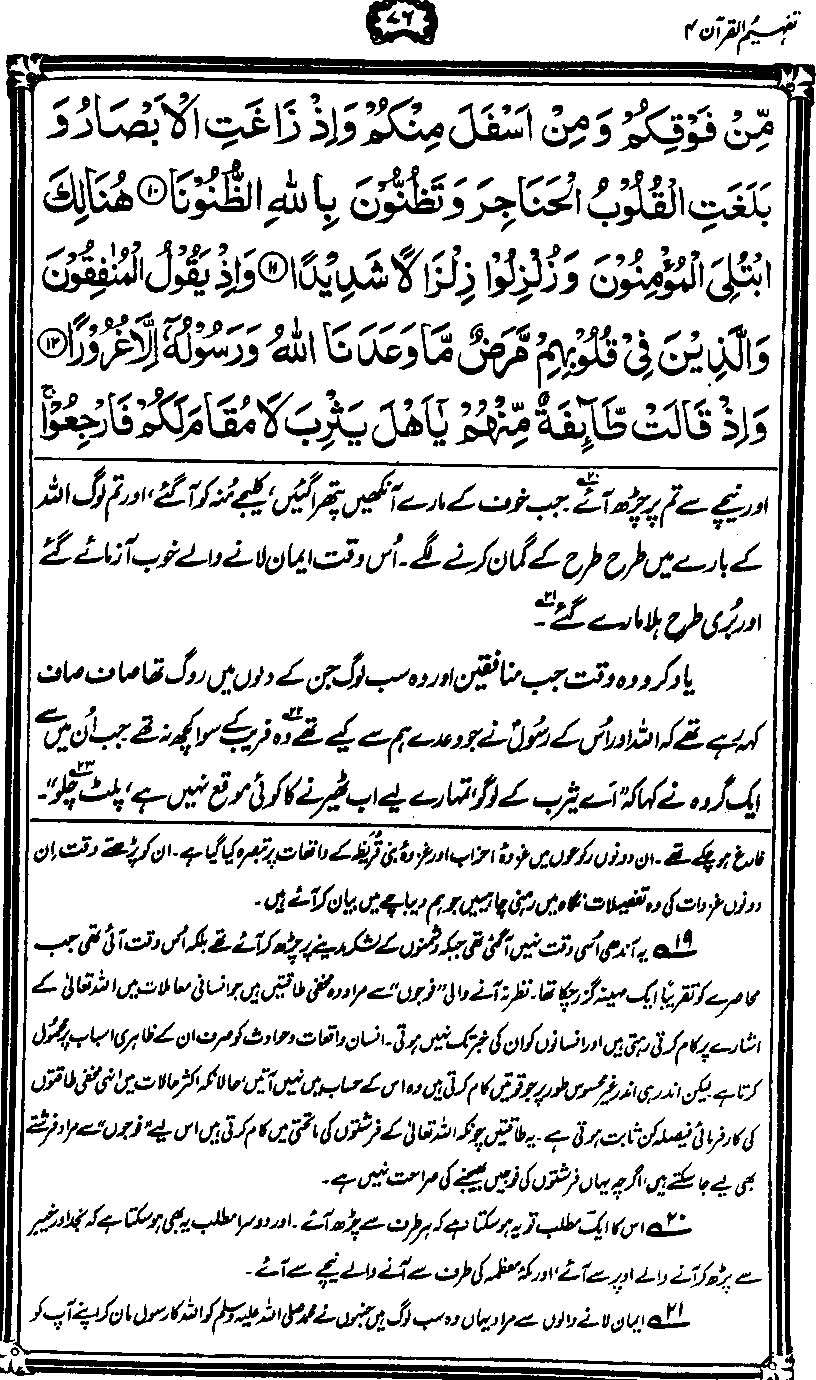 تفہیم القرآن ۴
۷۶
مِّنْ فَوْقِكُمْ وَمِنْ اَسْفَلَ مِنْكُمْ وَاِذْ زَاغَتِ الْاَبْصَارُ وَ
بَلَغَتِ الْقُلُوْبُ الْحَنَاجِرَ وَتَظُنُّوْنَ بِاللّٰهِ الظُّنُوْنَا ۱۰ هُنَالِكَ
ابْتُلِيَ الْمُؤْمِنُوْنَ وَزُلْزِلُوْا زِلْزَالًا شَدِيْدًا ۱۱ وَاِذْ يَقُوْلُ الْمُنٰفِقُوْنَ
وَالَّذِيْنَ فِيْ قُلُوْبِهِمْ مَّرَضٌ مَّا وَعَدَنَا اللّٰهُ وَرَسُوْلُهٗٓ اِلَّا غُرُوْرًا ۱۲
وَاِذْ قَالَتْ طَّآئِفَةٌ مِّنْهُمْ يٰٓاَهْلَ يَثْرِبَ لَا مُقَامَ لَكُمْ فَارْجِعُوْا ۚ
اور نیچے سے تم پر چڑھ آئے۲۰ جب خوف کے مارے آنکھیں پتھرا گئیں، کلیجے مُنہ کو آ گئے، اور تم لوگ اللہ
کے بارے میں طرح طرح کے گمان کرنے لگے۔ اُس وقت ایمان لانے والے خوب آزمائے گئے
اور بُری طرح ہلا مارے گئے۲۱۔
یاد کرو وہ وقت جب منافقین اور وہ سب لوگ جن کے دلوں میں روگ تھا صاف صاف
کہہ رہے تھے کہ اللہ اور اُس کے رسولؐ نے جو وعدے ہم سے کیے تھے۲۲ وہ فریب کے سوا کچھ نہ تھے جب اُن میں سے
ایک گروہ نے کہا کہ "اے یثرب کے لوگو، تمہارے لیے اب ٹھیرنے کا کوئی موقع نہیں ہے، پلٹ چلو۲۳"۔
فارغ ہو چکے تھے۔ ان دونوں رکوعوں میں غزوۂ احزاب اور غزوۂ بنی قُریظَہ کے واقعات پر تبصرہ کیا گیا ہے۔ ان کو پڑھتے وقت اِن
دونوں غزوات کی وہ تفصیلات نگاہ میں رہنی چاہییں جو ہم دیباچے میں بیان کر آئے ہیں۔
۱۹ یہ آندھی اُسی وقت نہیں آ گئی تھی جبکہ دشمنوں کے لشکر مدینے پر چڑھ کر آئے تھے بلکہ اُس وقت آئی تھی جب
محاصرے کو تقریبًا ایک مہینہ گزر چکا تھا۔ نظر نہ آنے والی "فوجوں" سے مراد وہ مخفی طاقتیں ہیں جو انسانی معاملات میں اللہ تعالیٰ کے
اشارے پر کام کرتی رہتی ہیں اور انسانوں کو ان کی خبر تک نہیں ہوتی۔ انسان واقعات و حوادث کو صرف ان کے ظاہری اسباب پر محمُول
کرتا ہے لیکن اندر ہی اندر غیر محسوس طور پر جو قوتیں کام کرتی ہیں وہ اس کے حساب میں نہیں آتیں، حالانکہ اکثر حالات میں انہی مخفی طاقتوں
کی کارفرمائی فیصلہ کن ثابت ہوتی ہے۔ یہ طاقتیں چونکہ اللہ تعالیٰ کے فرشتوں کی ماتحتی میں کام کرتی ہیں اس لیے "فوجوں" سے مراد فرشتے
بھی لیے جا سکتے ہیں، اگرچہ یہاں فرشتوں کی فوجیں بھیجنے کی صراحت نہیں ہے۔
۲۰ اس کا ایک مطلب تو یہ ہو سکتا ہے کہ ہر طرف سے چڑھ آئے۔ اور دوسرا مطلب یہ بھی ہو سکتا ہے کہ نجد اور خیبر
سے چڑھ کر آنے والے اوپر سے آئے، اور مکۂ معظمہ کی طرف سے آنے والے نیچے سے آئے۔
۲۱ ایمان لانے والوں سے مراد یہاں وہ سب لوگ ہیں جنہوں نے محمد صلی اللہ علیہ وسلم کو اللہ کا رسول مان کر اپنے آپ کو